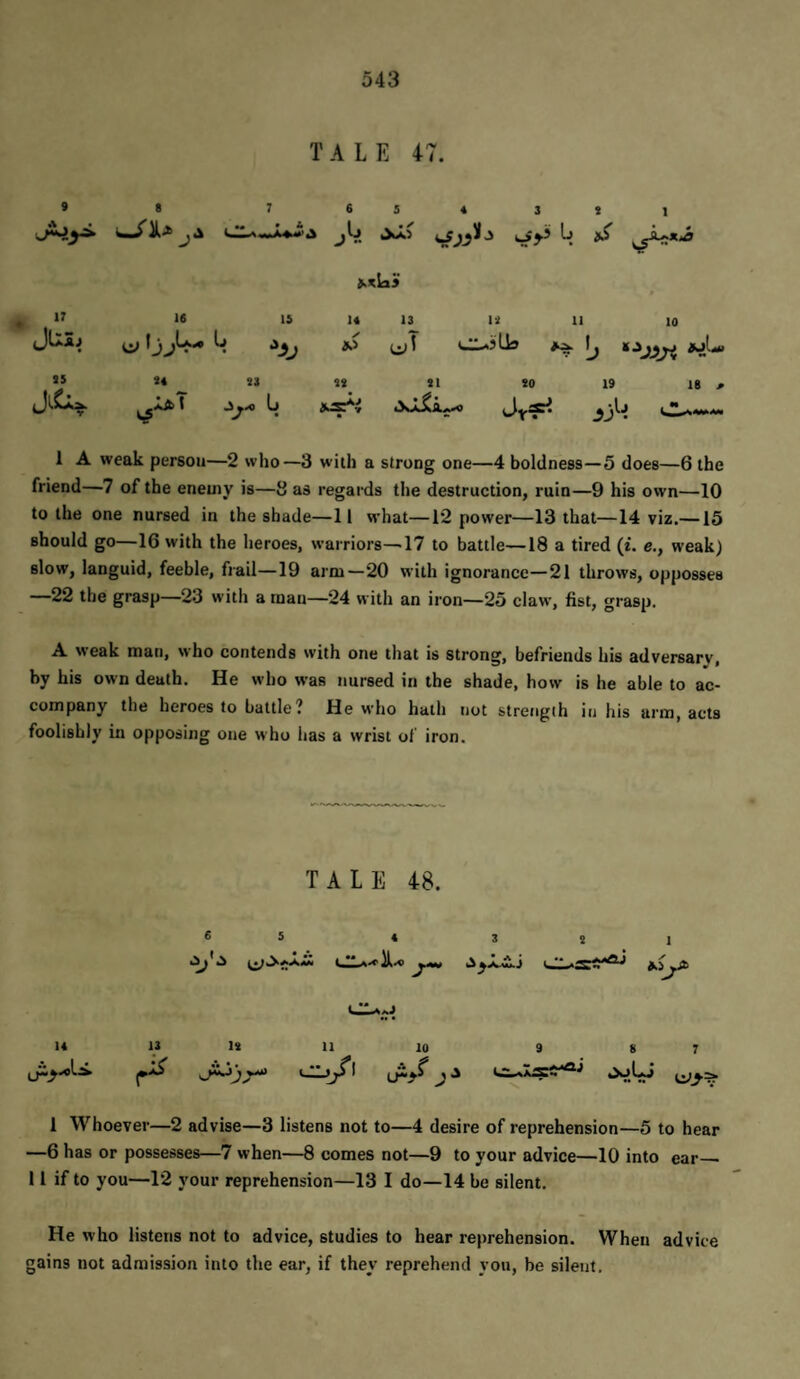 543
TALE 47.
9 8 7 6 5 4 3 2 1
ضعیفی که با قوی دلاوری کند یار دشمنست در هلاک خویش
قطعه
17 16 15 14 13 12 11 10
سایه پرورده را چه طاقت آن که رود با مبارزان بقتال
25 24 23 22 21 20 19 18
سست بازو بجهل میفکند پنجه با مرد آهنی چنگال
1 A weak person—2 who—3 with a strong one—4 boldness—5 does—6 the
friend—7 of the enemy is—8 as regards the destruction, ruin—9 his own—10
to the one nursed in the shade—11 what—12 power—13 that—14 viz.—15
should go—16 with the heroes, warriors—17 to battle—18 a tired (i. e., weak)
slow, languid, feeble, frail—19 arm—20 with ignorance—21 throws, opposses
—22 the grasp—23 with a man—24 with an iron—25 claw, fist, grasp.
A weak man, who contends with one that is strong, befriends his adversary,
by his own death. He who was nursed in the shade, how is he able to ac-
company the heroes to battle? He who hath not strength in his arm, acts
foolishly in opposing one who has a wrist of iron.
TALE 48.
6 5 4 3 2 1
هرکه نصیحت نشنود سر ملامت شنیدن دارد
بیت
14 13 12 11 10 9 8 7
چون نیاید نصیحتت در گوش اگرت سرزنش کنم خاموش
1 Whoever—2 advise—3 listens not to—4 desire of reprehension—5 to hear
—6 has or possesses—7 when—8 comes not—9 to your advice—10 into ear—
11 if to you—12 your reprehension—13 I do—14 be silent.
He who listens not to advice, studies to hear reprehension. When advice
gains not admission into the ear, if they reprehend you, be silent.